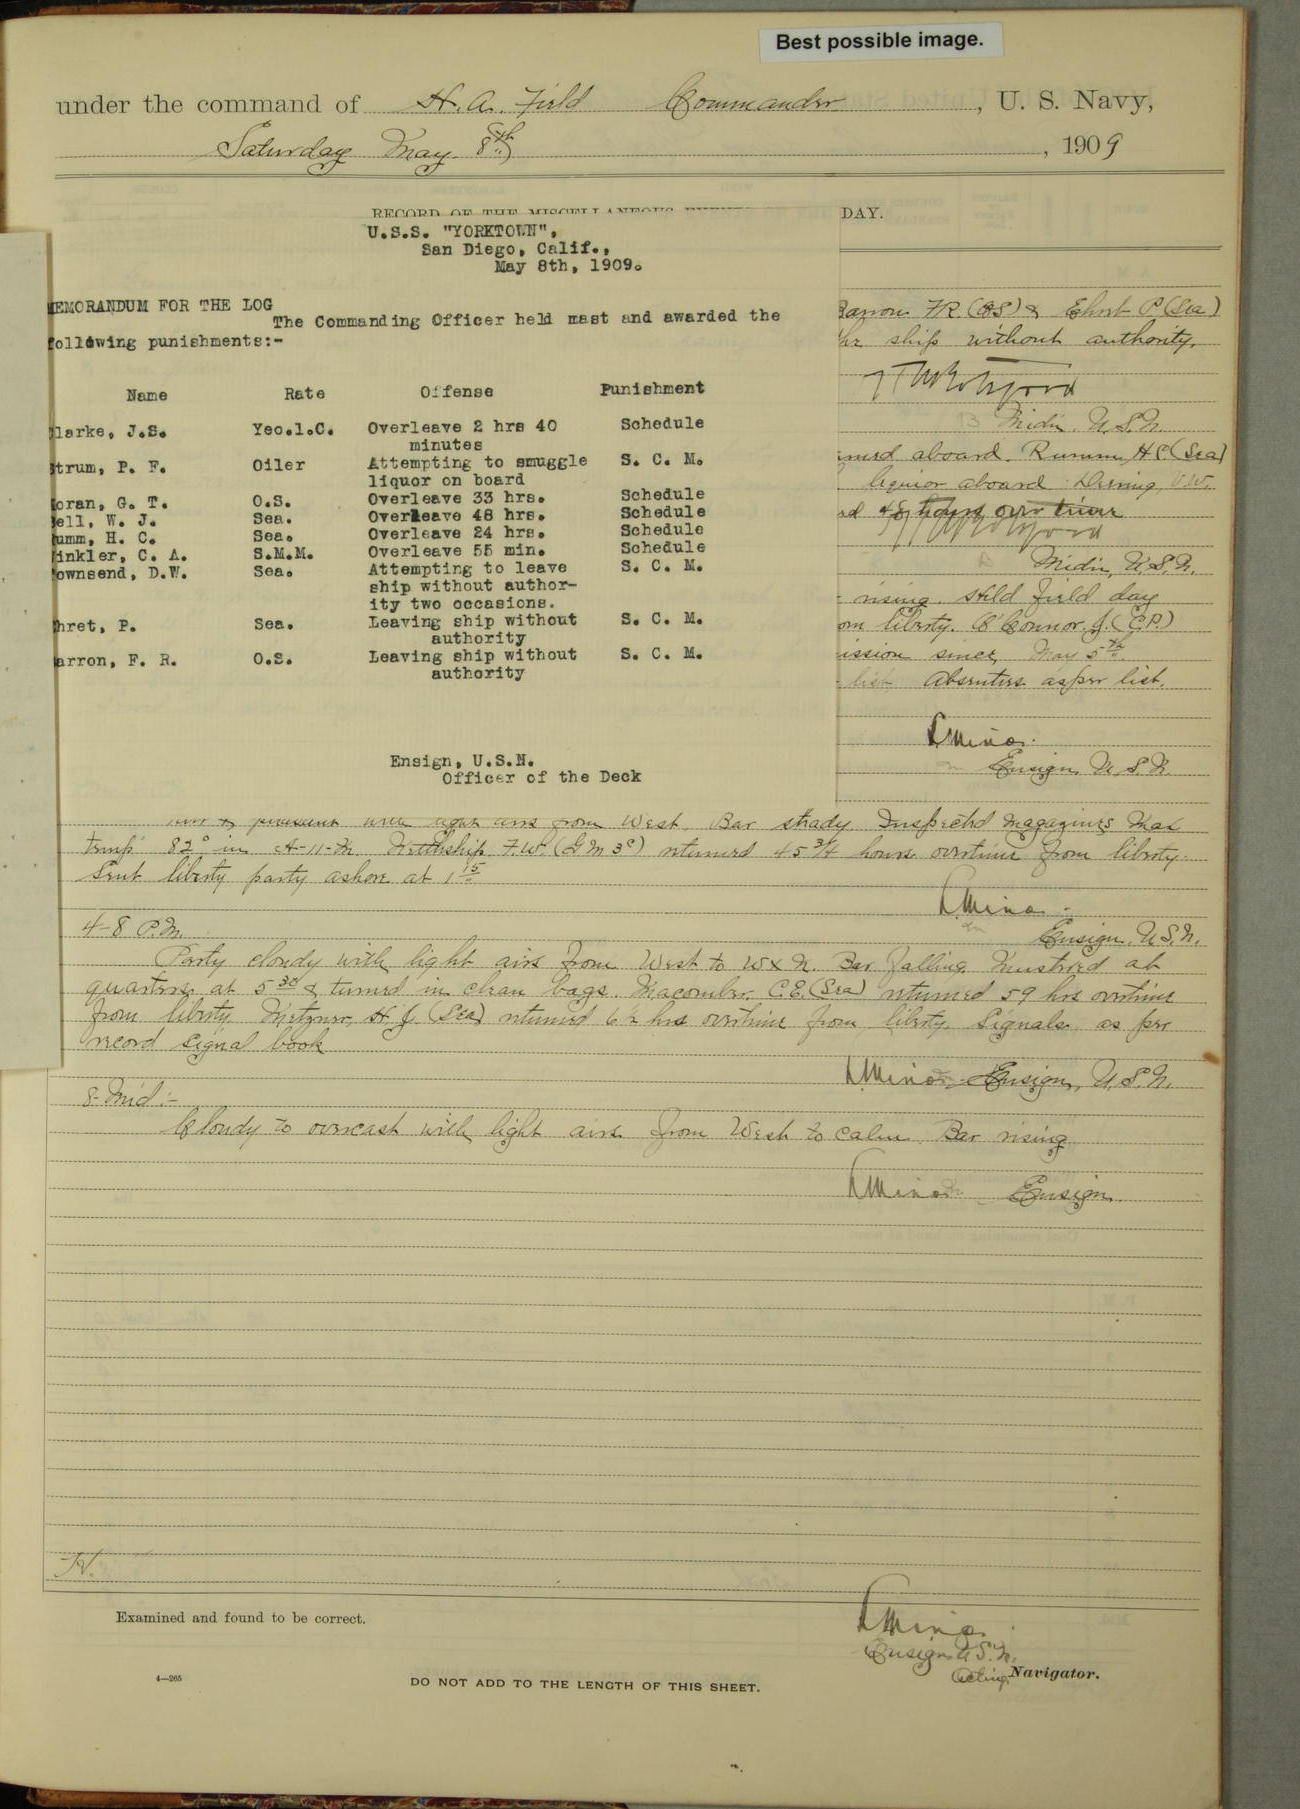 Best possible image.
under the command of H. A. Field Commander, U. S. Navy,
Saturday May 8th, 1909
RECORD OF THE MISCELLANEOUS DAY.
U.S.S. "YORKTOWN",
San Diego, Calif.,
May 8th, 1909.
MEMORANDUM FOR THE LOG
The Commanding Officer held mast and awarded the
following punishments:-
Name Rate Offense Punishment
larke, J.S. Yeo.1.C. Overleave 2 hrs 40 Schedule
minutes
trum, P. F. Oiler Attempting to smuggle S. C. M.
liquor on board
oran, G. T. O.S. Overleave 33 hrs. Schedule
ell, W. J. Sea. Overleave 48 hrs. Schedule
umm, H. C. Sea. Overleave 24 hrs. Schedule
inkler, C. A. S.M.M. Overleave 55 min. Schedule
ownsend, D.W. Sea. Attempting to leave S. C. M.
ship without author-
ity two occasions.
hret, P. Sea. Leaving ship without S. C. M.
authority
arron, F. R. O.S. Leaving ship without S. C. M.
authority
Ensign, U.S.N.
Officer of the Deck
Barron FR (OS) & P (Sea)
ship without authority.
Midn. U.S.N.
aboard. (Sea)
liquor aboard
48 hours over time
Midn, U.S.N.
rising. Held field day
liberty. O'Connor, J. (C.P.)
since May 5th.
list Absentees as per list.
Ensign U.S.N.
with light airs from West. Bar steady Inspected Magazines Max
temp. 82° in A-11-M. F.W. (G M 3c) returned 45 3/4 hours overtime from liberty.
Sent liberty party ashore at 1 15
Ensign. U.S.N.
4-8 P.M.
Partly cloudy with light airs from West to WxN. Bar falling. Mustered at
quarters at 5 30 & turned in clean bags. Macomber, C.E. (Sea) returned 59 hrs overtime
from liberty. Metzner, H. J. (Sea) returned 6½ hrs overtime from liberty. Signals as per
record signal book
Ensign, U.S.N.
8-Mid:-
Cloudy to overcast with light airs from West to calm. Bar rising
Ensign.
Examined and found to be correct.
Ensign U.S.N.
Acting Navigator.
4—265
DO NOT ADD TO THE LENGTH OF THIS SHEET.